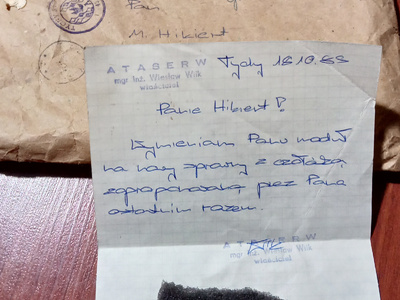 Pan
M. Hikiert
ATASERW
mgr inż. Wiesław Wilk
właściciel
Tychy 18.10.88
Panie Hikiert!
Wymieniam Panu moduł
na nasz sprawny z
zaproponowaną przez Pana
ostatnim razem.
ATASERW
mgr inż. Wiesław Wilk
właściciel